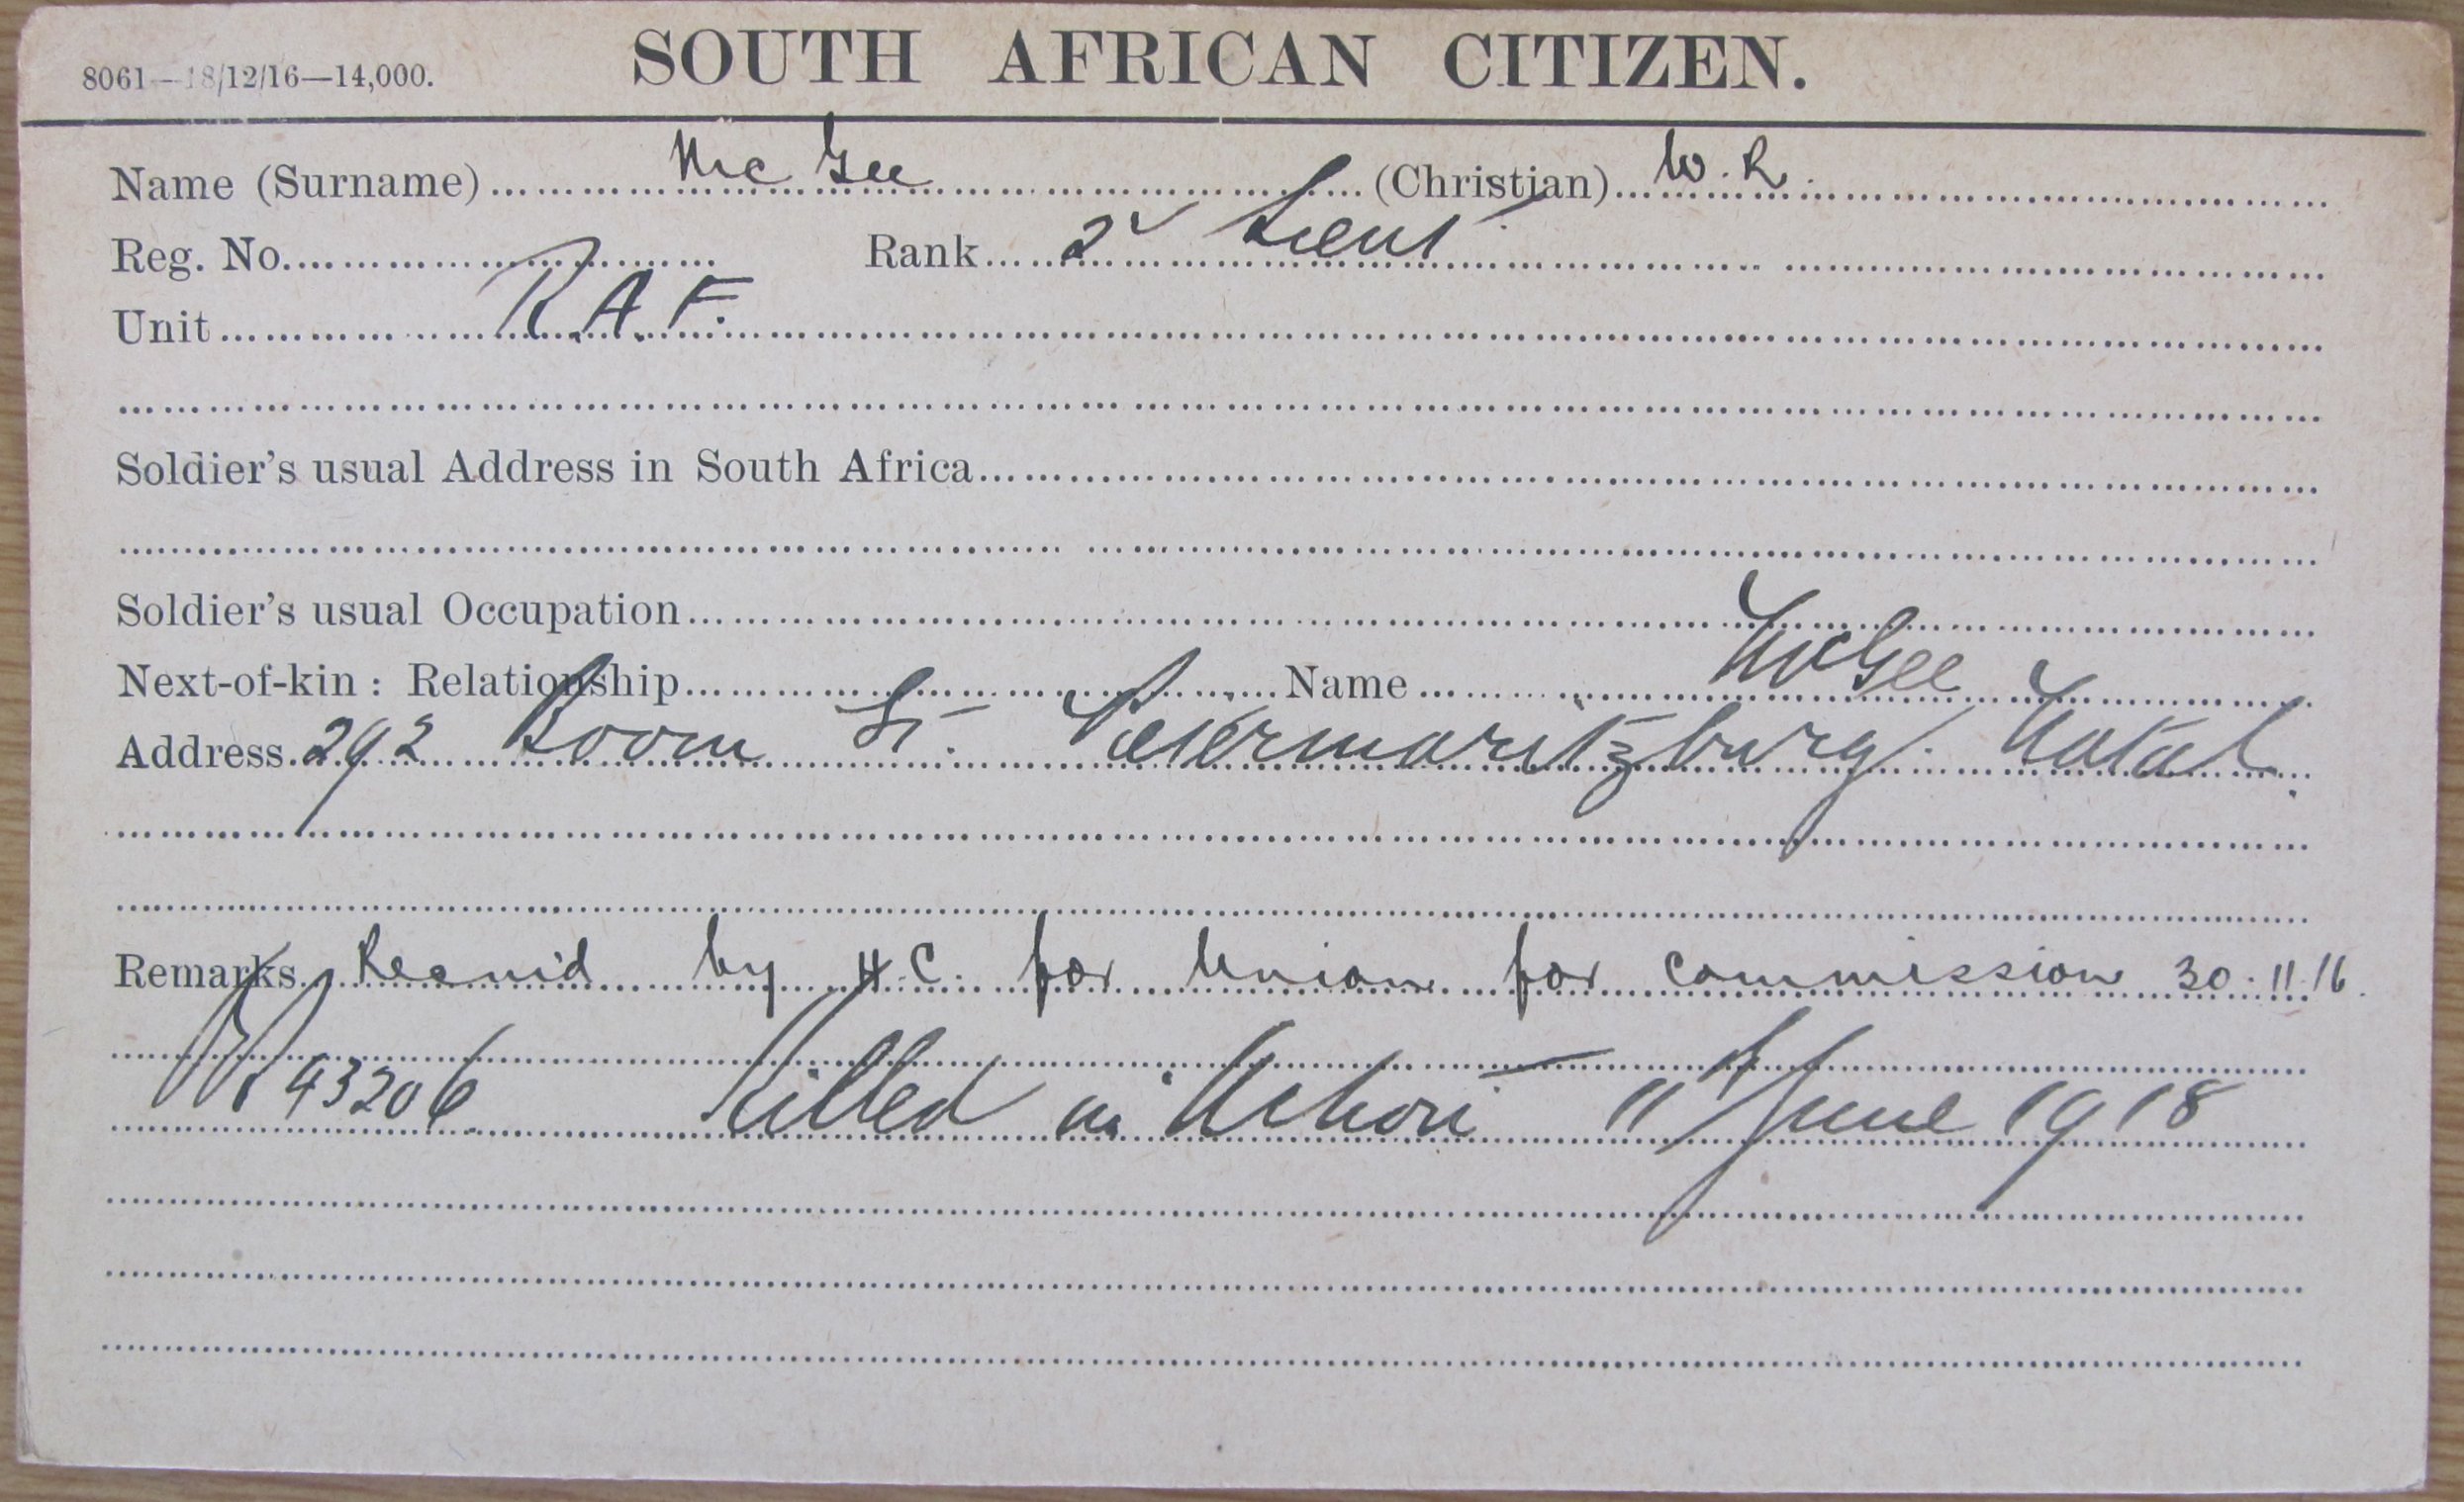 8061—18/12/16—14,000. SOUTH AFRICAN CITIZEN.
Name (Surname) Mc Gee (Christian) W. R.
Reg. No. Rank 2 Lieut.
Unit R.A.F.
Soldier's usual Address in South Africa
Soldier's usual Occupation
Next-of-kin: Relationship Name McGee
Address. 292 Boom St. Petermaritzburg. Natal.
Remarks. Recm'd by H.C. for Union for commission 30.11.16.
43206. Killed in Action 11 June 1918